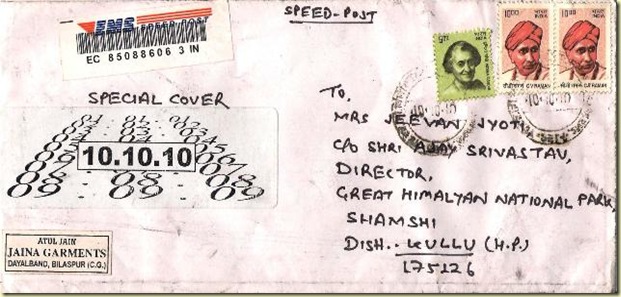 SPEED-POST
EMS SPEED POST
EC 85088606 3 IN
5.00 भारत INDIA
10.00 भारत INDIA
सी वी रामन C V RAMAN
10.00 भारत INDIA
सी वी रामन C V RAMAN
10.10.10
10.10.10
SPECIAL COVER
10.10.10
08 08 08
09 09 09
To,
MRS JEEVAN JYOTI
C/O SHRI AJAY SRIVASTAV,
DIRECTOR,
GREAT HIMALYAN NATIONAL PARK,
SHAMSHI
DISH.. KULLU (H.P.)
175126
ATUL JAIN
JAINA GARMENTS
DAYALBAND, BILASPUR (C.G.)